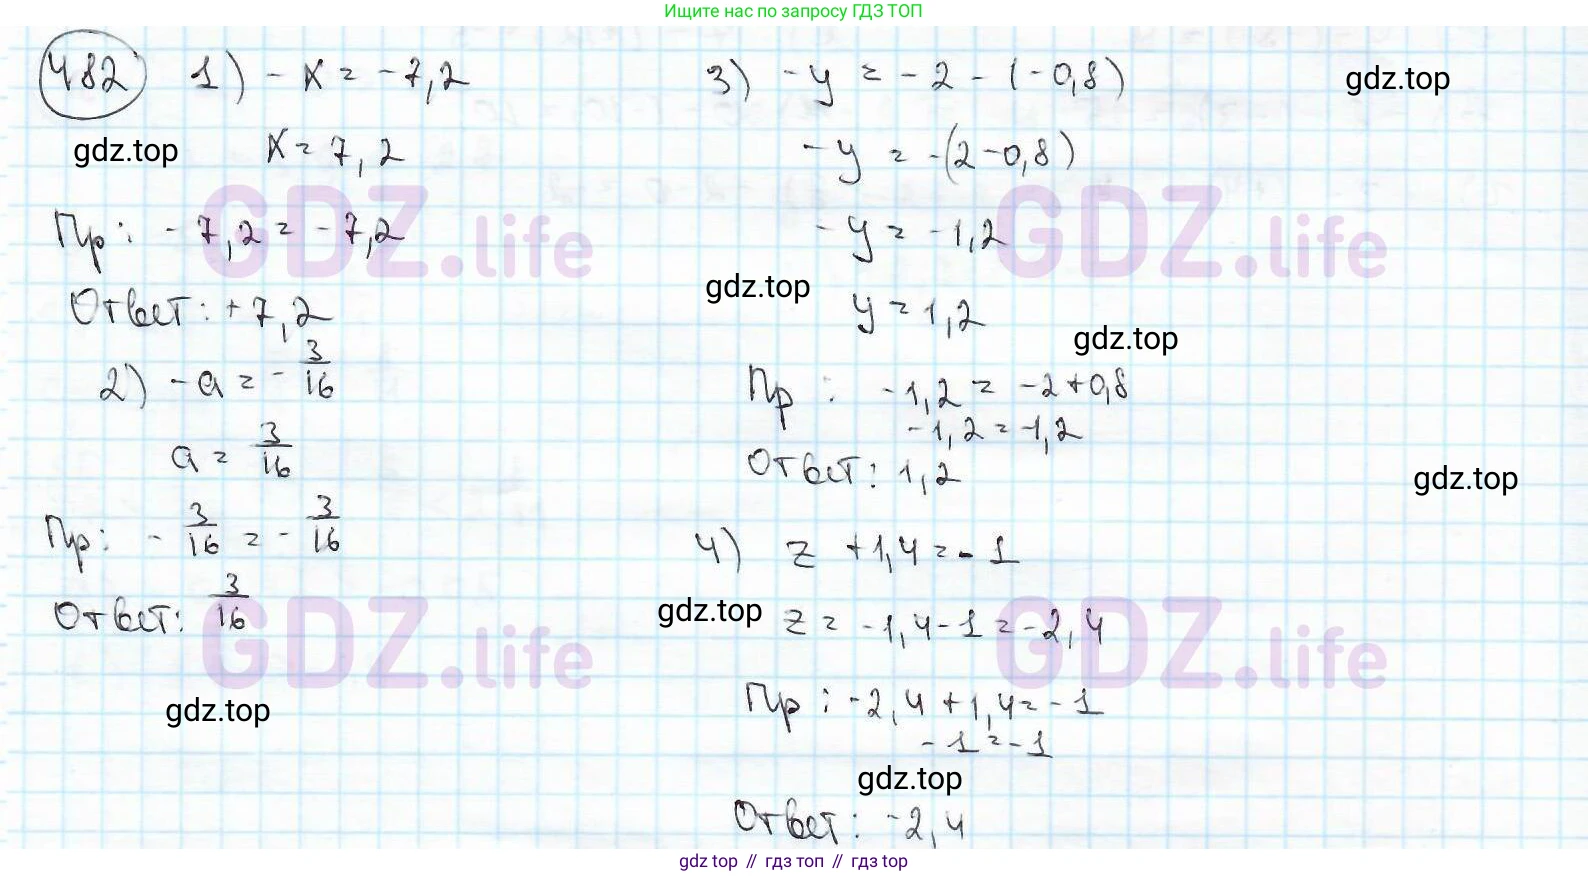 Ищите нас по запросу ГДЗ ТОП
482 1) - x = -7,2
gdz.top
x = 7,2
Пр: -7,2 = -7,2
GDZ.life
Ответ: +7,2
2) -a = - 3/16
a = 3/16
Пр: - 3/16 = - 3/16
Ответ: 3/16
GDZ.life
gdz.top
3) -y = -2 - (-0,8)
gdz.top
-y = -(2-0,8)
-y = -1,2
GDZ.life
gdz.top
y = 1,2
gdz.top
Пр: -1,2 = -2+0,8
-1,2 = -1,2
Ответ: 1,2
gdz.top
4) z + 1,4 = - 1
gdz.top
z = -1,4-1 = -2,4
GDZ.life
Пр: -2,4 + 1,4 = -1
-1 = -1
gdz.top
Ответ: -2,4
gdz top // гдз топ // гдз top